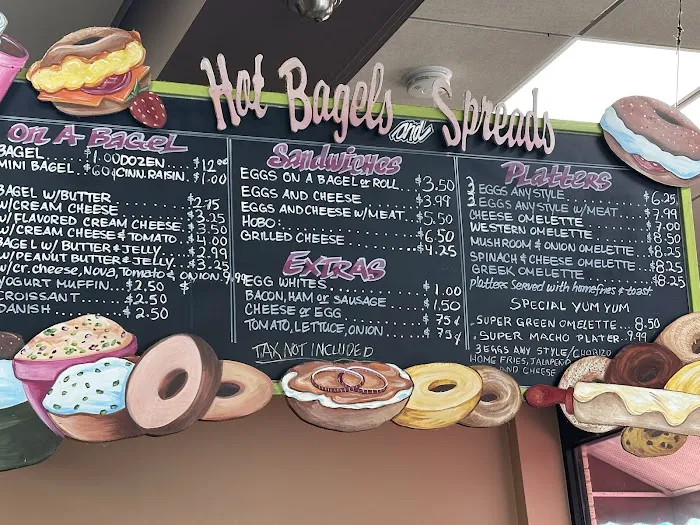 Hot Bagels and Spreads
On A Bagel
BAGEL ... $1.00 DOZEN .... $12.00
MINI BAGEL . $.60¢ CINN. RAISIN. $1.00
BAGEL W/BUTTER ... $2.75
W/CREAM CHEESE ... $3.25
W/FLAVORED CREAM CHEESE. $3.50
W/CREAM CHEESE & TOMATO. $4.00
BAGEL W/ BUTTER & JELLY... $2.99
W/PEANUT BUTTER & JELLY... $3.25
W/cr.cheese, Nova, Tomato & ONION. 9.99
YOGURT MUFFIN.... $2.50
CROISSANT ........ $2.50
DANISH ........ $2.50
Sandwiches
EGGS ON A BAGEL or ROLL... $3.50
EGGS AND CHEESE ... $3.99
EGGS AND CHEESE W/MEAT.. $5.50
HOBO: ... $6.50
GRILLED CHEESE ... $4.25
Extras
EGG WHITES ... $1.00
BACON, HAM or SAUSAGE ... $1.50
CHEESE or EGG ... $75¢
TOMATO, LETTUCE, ONION ... $75¢
TAX NOT INCLUDED
Platters
EGGS ANY STYLE ... $6.25
EGGS ANY STYLE W/MEAT. $7.99
CHEESE OMELETTE ... $7.00
WESTERN OMELETTE ... $8.50
MUSHROOM & ONION OMELETTE.. $8.25
SPINACH & CHEESE OMELETTE .. $8.25
GREEK OMELETTE ... $8.25
platters Served with homefries & toast.
SPECIAL YUM YUM
.SUPER GREEN OMELETTE... 8.50
.SUPER MACHO PLATER.. 9.99
3 EGGS ANY STYLE/CHORIZO
HOME FRIES, JALAPEÑO
AND CHEESE)